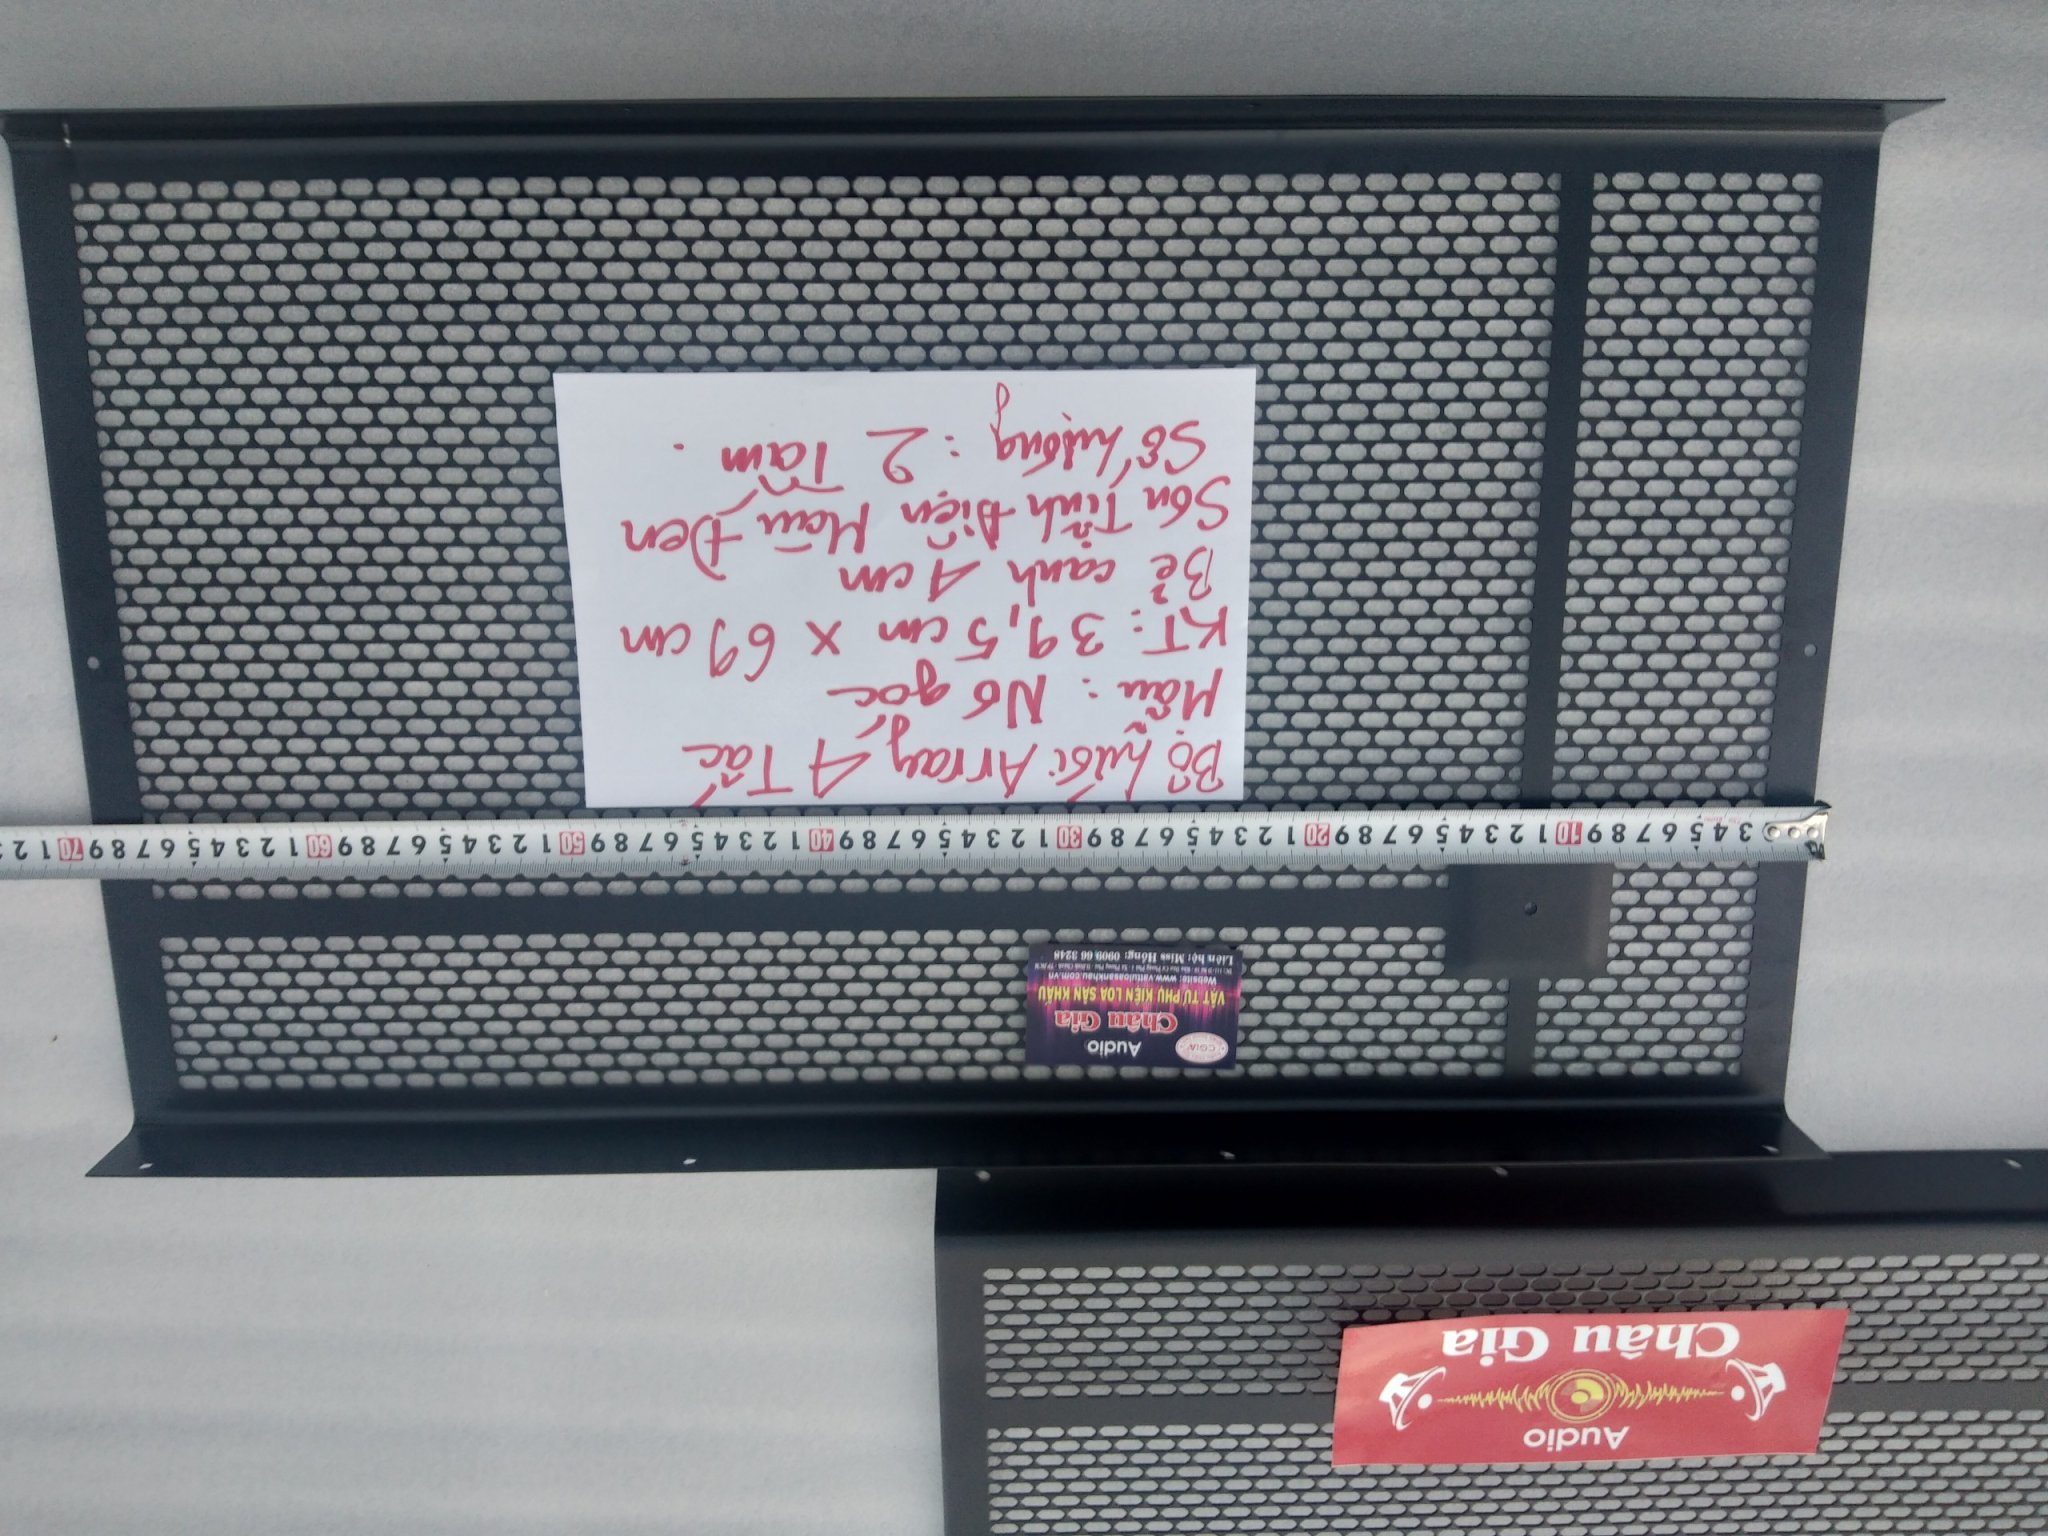 Bộ lưới Array 4 Tấc
Mẫu: No góc
KT: 39,5 cm x 69 cm
Bẻ cạnh 4 cm
Sơn Tĩnh Điện Màu Đen
Số lượng: 2 Tấm.
3 4 5 6 7 8 9 10 1 2 3 4 5 6 7 8 9 20 1 2 3 4 5 6 7 8 9 30 1 2 3 4 5 6 7 8 9 40 1 2 3 4 5 6 7 8 9 50 1 2 3 4 5 6 7 8 9 60 1 2 3 4 5 6 7 8 9 70 1 2
CGIA
Audio
Châu Gia
VẬT TƯ PHỤ KIỆN LOA SÂN KHẤU
Website: www.vattuloasankhau.com.vn
Liên hệ: Miss Hồng: 0909 66 3248
Audio
Châu Gia